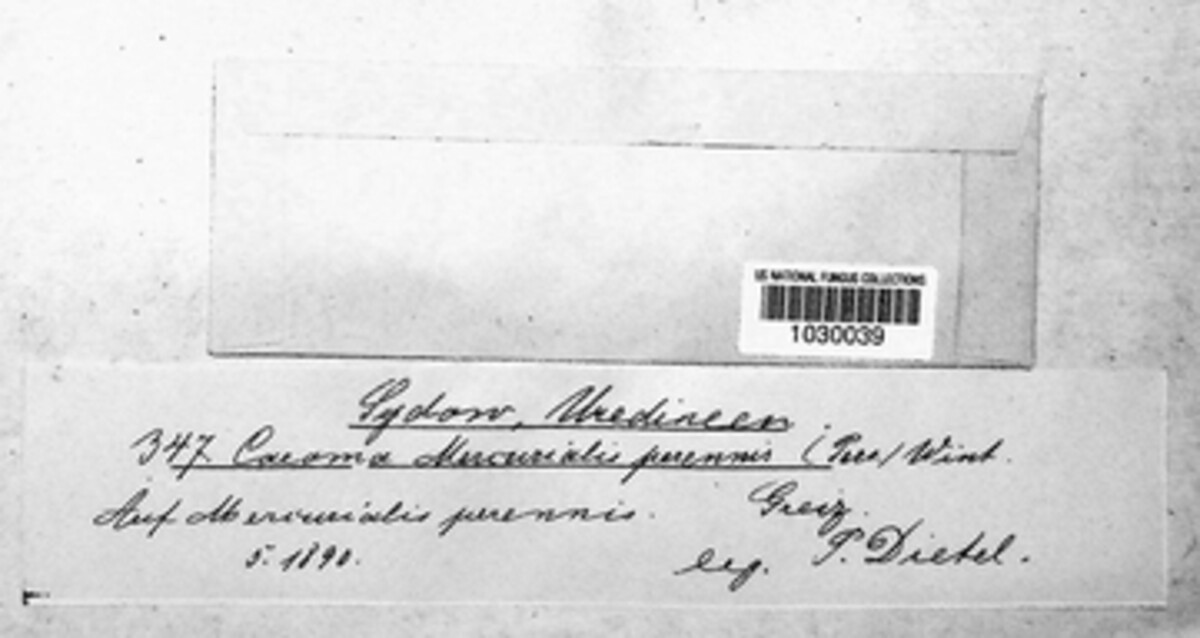 US NATIONAL FUNGUS COLLECTIONS
1030039
Sydow, Uredineen.
347. Caeoma Mercurialis perennis (Pers) Wint.
Auf Mercurialis perennis. Greiz.
5. 1890. leg. P. Dietel.